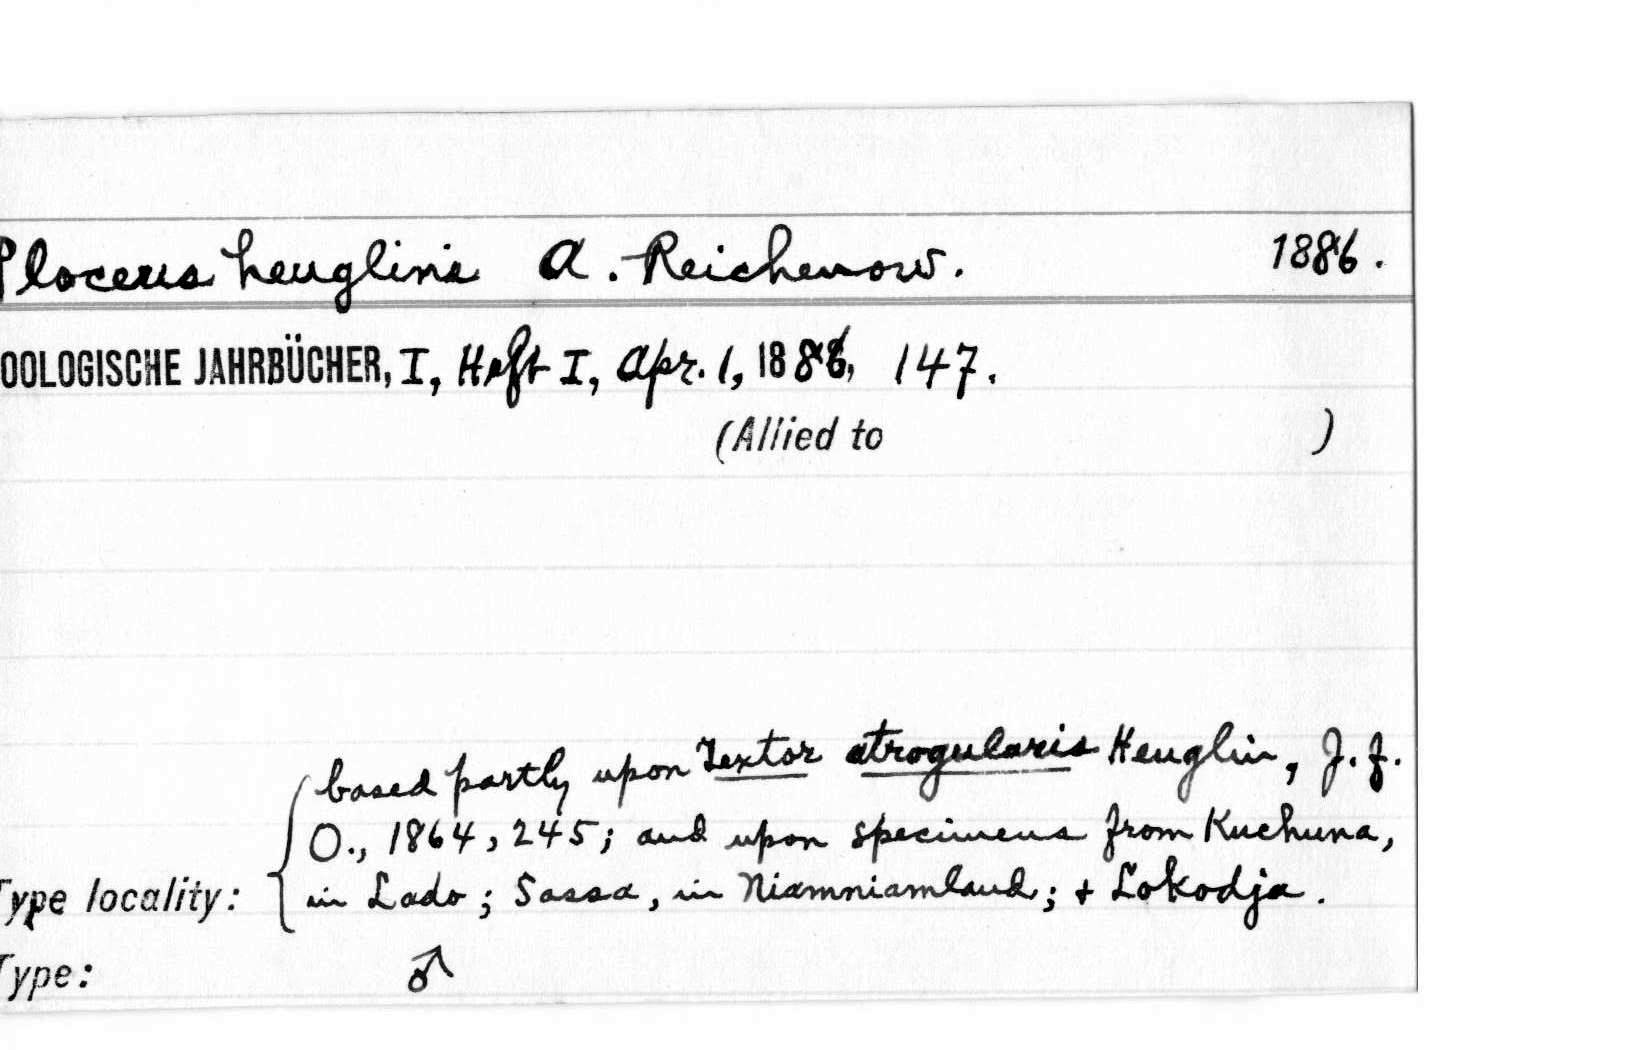 Ploceus heuglini A. Reichenow. 1886.
ZOOLOGISCHE JAHRBÜCHER, I, Heft I, Apr. 1, 1886, 147.
(Allied to )
based partly upon Textor atrogularis Heuglin, J. f.
O., 1864, 245; and upon specimens from Kuchuna,
Type locality: in Lado; Sassa, in Niamniamland; + Lokodja.
Type: ♂